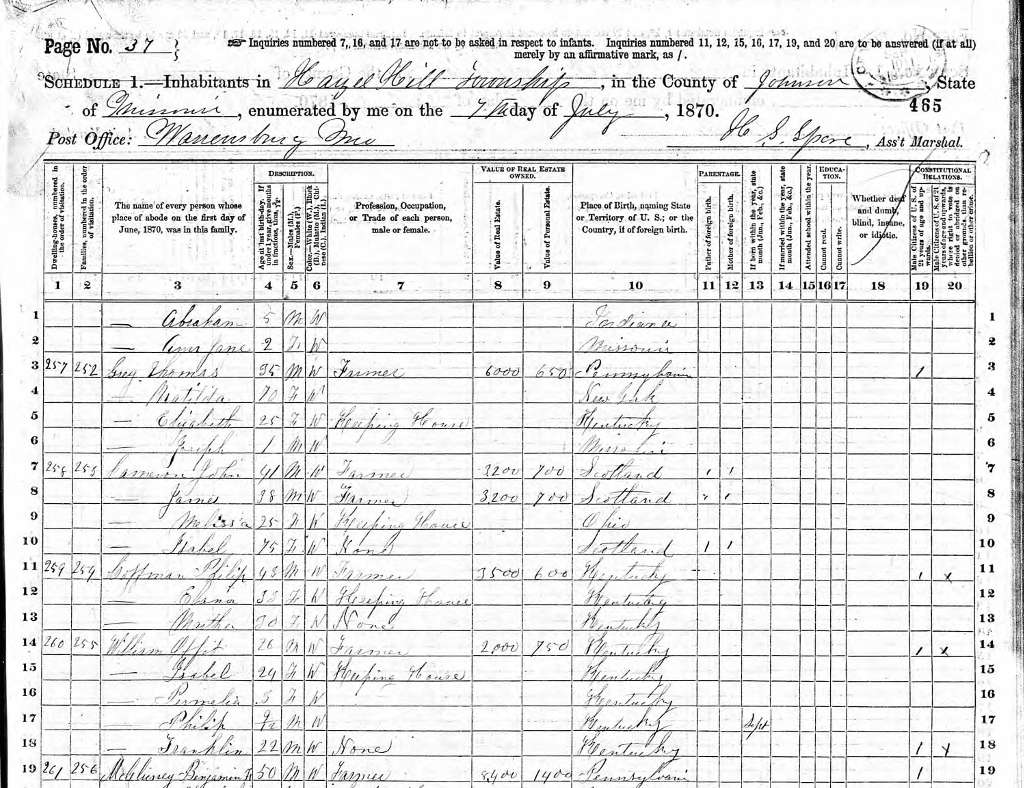 Page No. 37 } Inquiries numbered 7, 16, and 17 are not to be asked in respect to infants. Inquiries numbered 11, 12, 15, 16, 17, 19, and 20 are to be answered (if at all)
merely by an affirmative mark, as /.
SCHEDULE 1.—Inhabitants in Hazel Hill Township, in the County of Johnson, State
of Missouri, enumerated by me on the 7th day of July, 1870. 465
Post Office: Warrensburg Mo H. S. , Ass't Marshal.
DESCRIPTION. VALUE OF REAL ESTATE OWNED. PARENTAGE. EDUCATION. CONSTITUTIONAL RELATIONS.
Dwelling-houses, numbered in the order of visitation.
Families, numbered in the order of visitation.
The name of every person whose place of abode on the first day of June, 1870, was in this family.
Age at last birth-day. If under 1 year, give months in fractions, thus,
Sex.—Males (M.), Females (F.)
Color.—White (W.), Black (B.), Mulatto (M.), Chinese (C.), Indian (I.)
Profession, Occupation, or Trade of each person, male or female.
Value of Real Estate.
Value of Personal Estate.
Place of Birth, naming State or Territory of U. S.; or the Country, if of foreign birth.
Father of foreign birth.
Mother of foreign birth.
If born within the year, state month (Jan., Feb., &c.)
If married within the year, state month (Jan., Feb., &c.)
Attended school within the year.
Cannot read.
Cannot write.
Whether deaf and dumb, blind, insane, or idiotic.
Male Citizens of U. S. of 21 years of age and upwards.
Male Citizens of U. S. of 21 years of age and upwards, where right to vote is denied or abridged on other grounds than rebellion or other crime.
1 2 3 4 5 6 7 8 9 10 11 12 13 14 15 16 17 18 19 20
1 — Abraham 5 M W Indiana 1
2 — Jane 2 F W Missouri 2
3 257 252 Thomas 35 M W Farmer 6000 650 Pennsylvania 1 3
4 — Matilda 70 F W New York 4
5 — Elizabeth 25 F W Keeping House Kentucky 5
6 — Joseph 1 M W Missouri 6
7 258 253 Cameron John 41 M W Farmer 3200 700 Scotland 1 1 7
8 — James 38 M W Farmer 3200 700 Scotland 8
9 — Melissa 25 F W Keeping House Ohio 9
10 — Isabel 75 F W None Scotland 1 1 10
11 259 254 Coffman Philip 43 M W Farmer 3500 600 Kentucky 1 x 11
12 — F W Keeping House Kentucky 12
13 — F W None Kentucky 13
14 260 255 William Offit 26 M W Farmer 2000 750 Kentucky 1 x 14
15 — Isabel 24 F W Keeping House Kentucky 15
16 — Permelia 3 F W Kentucky 16
17 — Philip M W Kentucky Sept 17
18 — Franklin 22 M W None Kentucky 1 x 18
19 261 256 Benjamin 50 M W Farmer 8400 1400 Pennsylvania 1 19